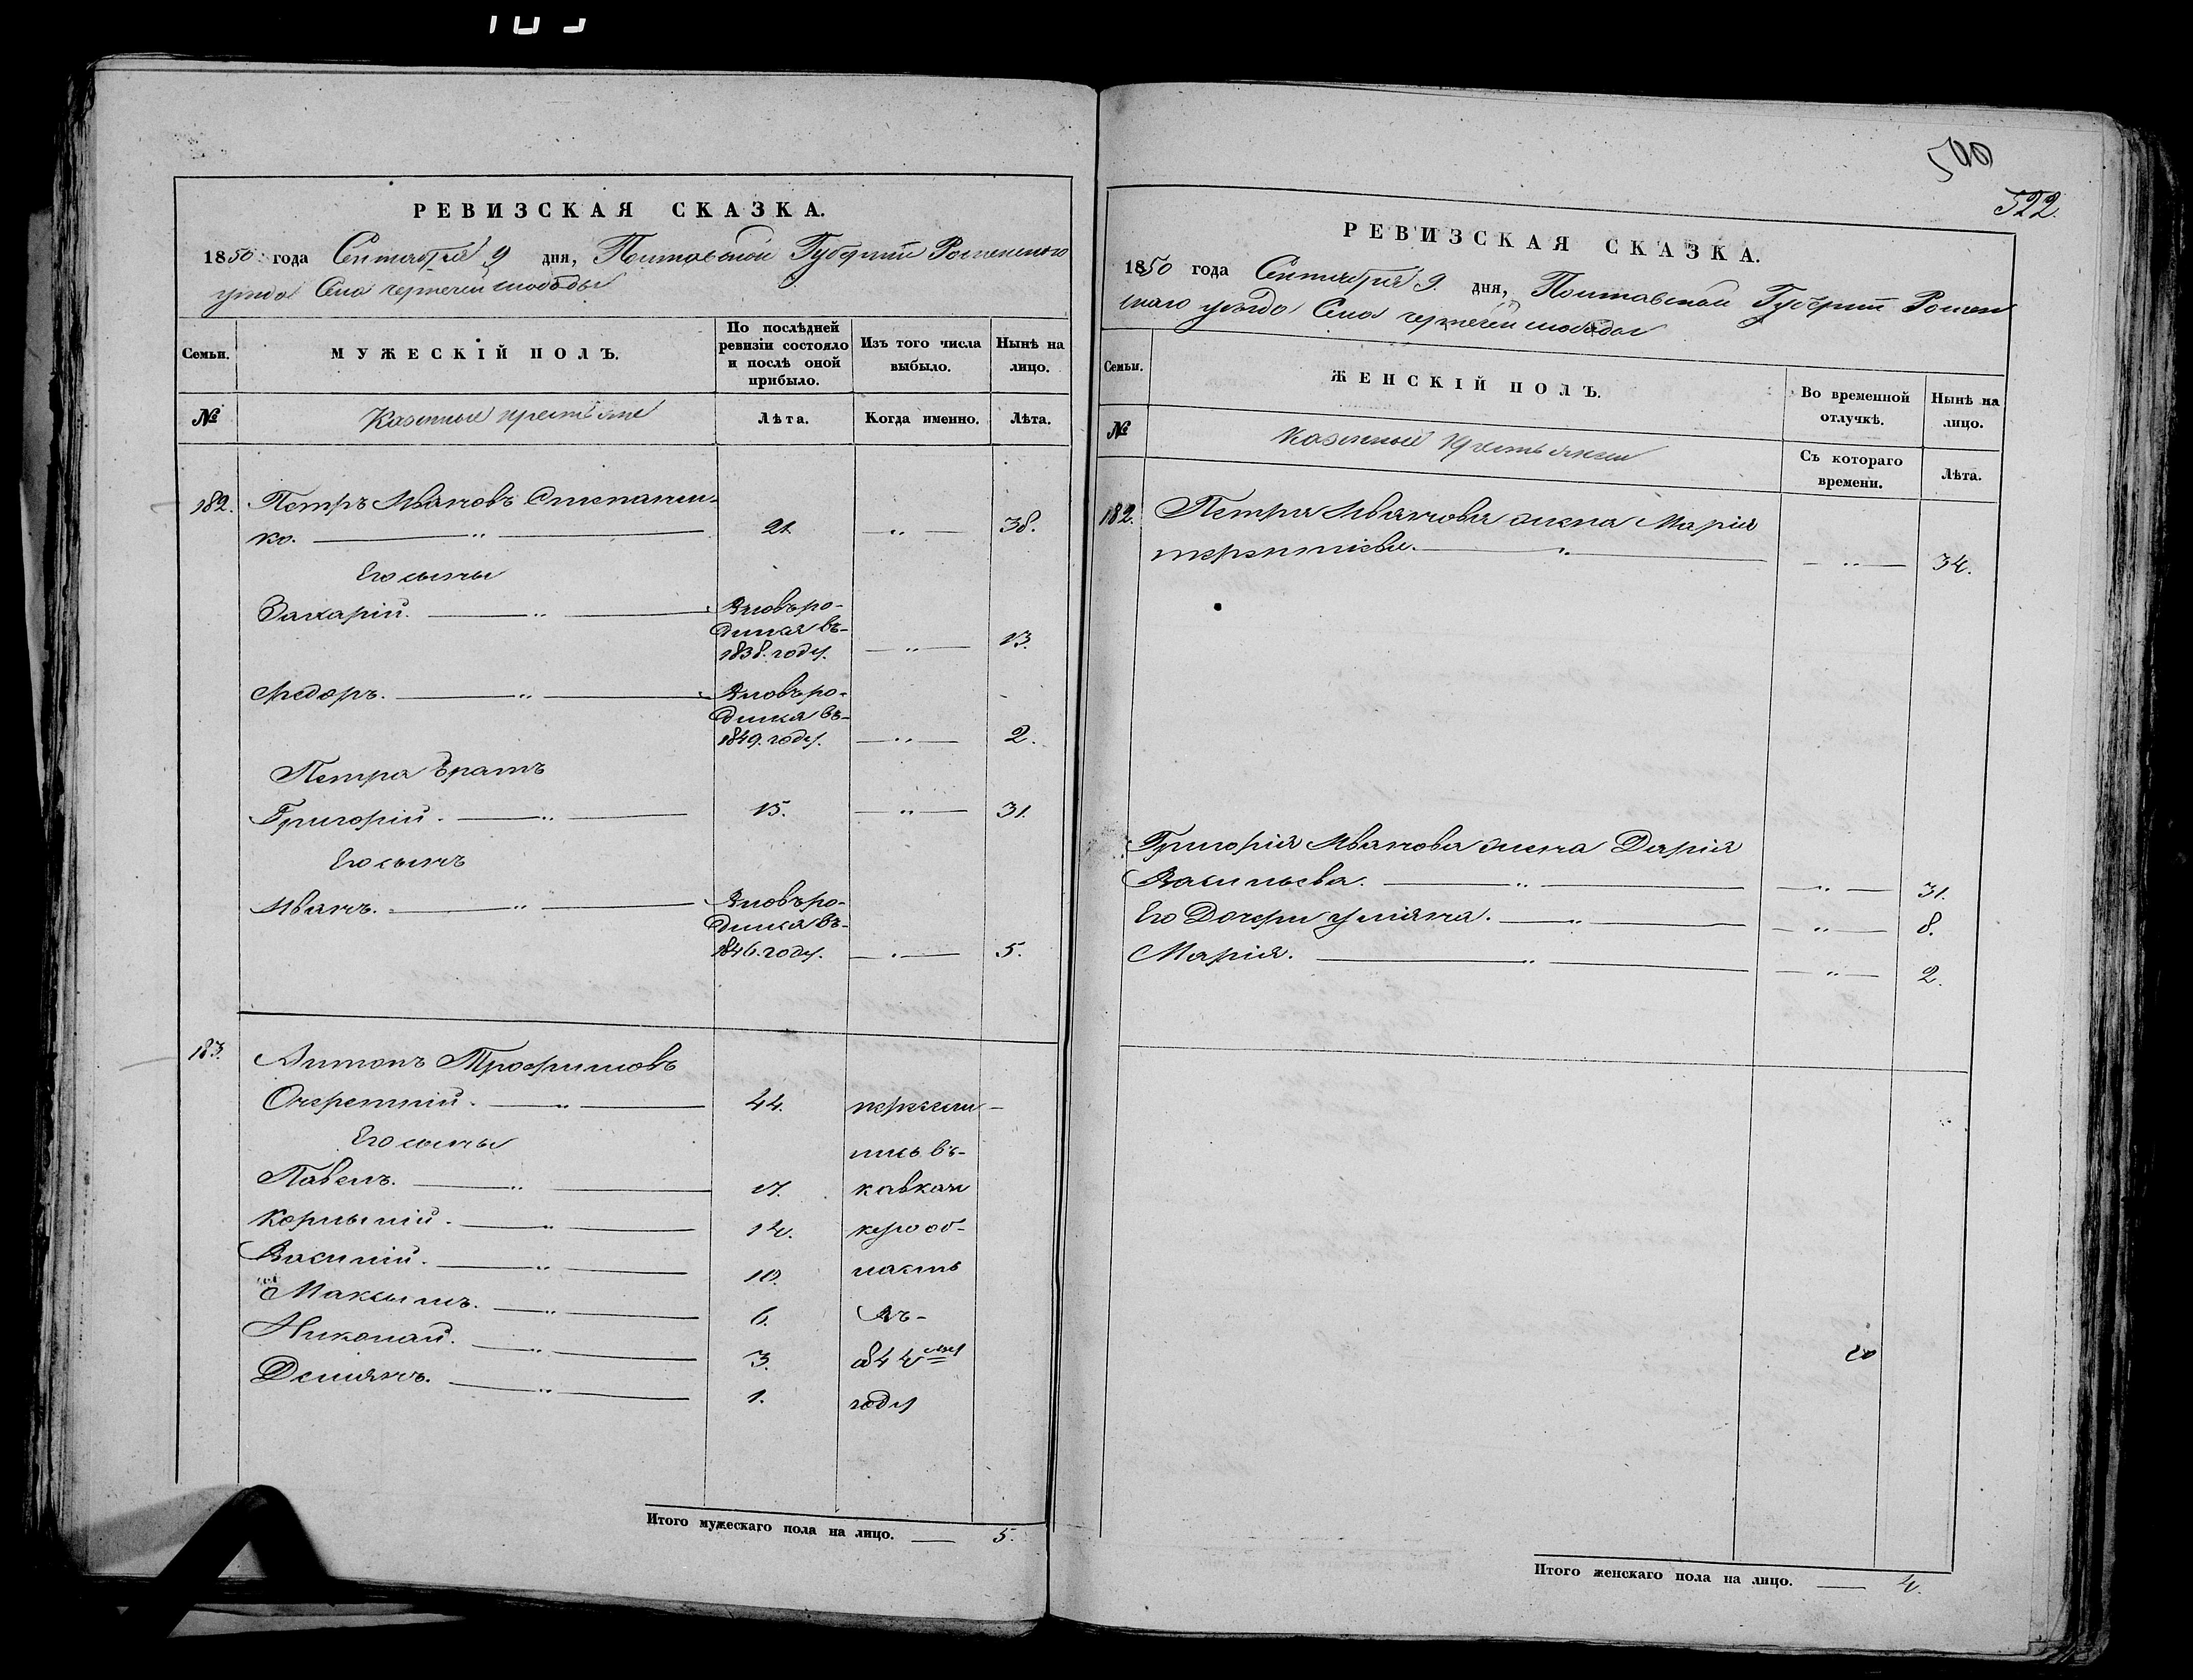 РЕВИЗСКАЯ СКАЗКА.
1850 года Сентября 9 дня, Полтавской Губерніи Роменского
уезда Села чернечей слободы
Семьи.
МУЖЕСКІЙ ПОЛЪ.
По послѣдней
ревизіи состояло
и послѣ оной
прибыло.
Изъ того числа
выбыло.
Нынѣ на
лицо.
№
Казенные крестьяне
Лѣта.
Когда именно.
Лѣта.
182. Петръ Ивановъ Степанен-
ко. — „ — 21. — „ — 38.
Его сыны
Захарій. — „ — Вновь ро-
дился въ-
1838. году. — „ — 13.
Федоръ. — „ — Вновь ро-
дился въ-
1849. году. — „ — 2.
Петра братъ
Григорій. — „ — 15. — „ — 31.
Его сынъ
Иванъ. — „ — Вновь ро-
дился въ-
1846. году. — „ — 5.
183. Антонъ Трофимовъ
Очеретній. — „ — 44. пересели-
Его сыны
лись въ-
Павелъ. — „ — 17. кавказ
Корнилій. — „ — 14. кую об-
Василій. — „ — 10. ласть
Максымъ. — „ — 6. Въ-
Николай. — „ — 3. 844 мъ
Демянъ. — „ — 1. году
Итого мужескаго пола на лицо. — 5.
500
522.
РЕВИЗСКАЯ СКАЗКА.
1850 года Сентября 9. дня, Полтавской Губерніи Ромен
скаго уезда Села чернечей слободы
Семьи.
ЖЕНСКІЙ ПОЛЪ.
Во временной
отлучкѣ.
Нынѣ на
лицо.
№
Казенные Крестьянки
Съ котораго
времени.
Лѣта.
182. Петра Иванова жена Марія
терентіева. — „ — — „ — 34.
Григорія Иванова жена Дарія
Васильева. — „ — — „ — 31.
Его Дочери уліяна. — „ — — „ — 8.
Марія. — „ — — „ — 2.
Итого женскаго пола на лицо. — 4.